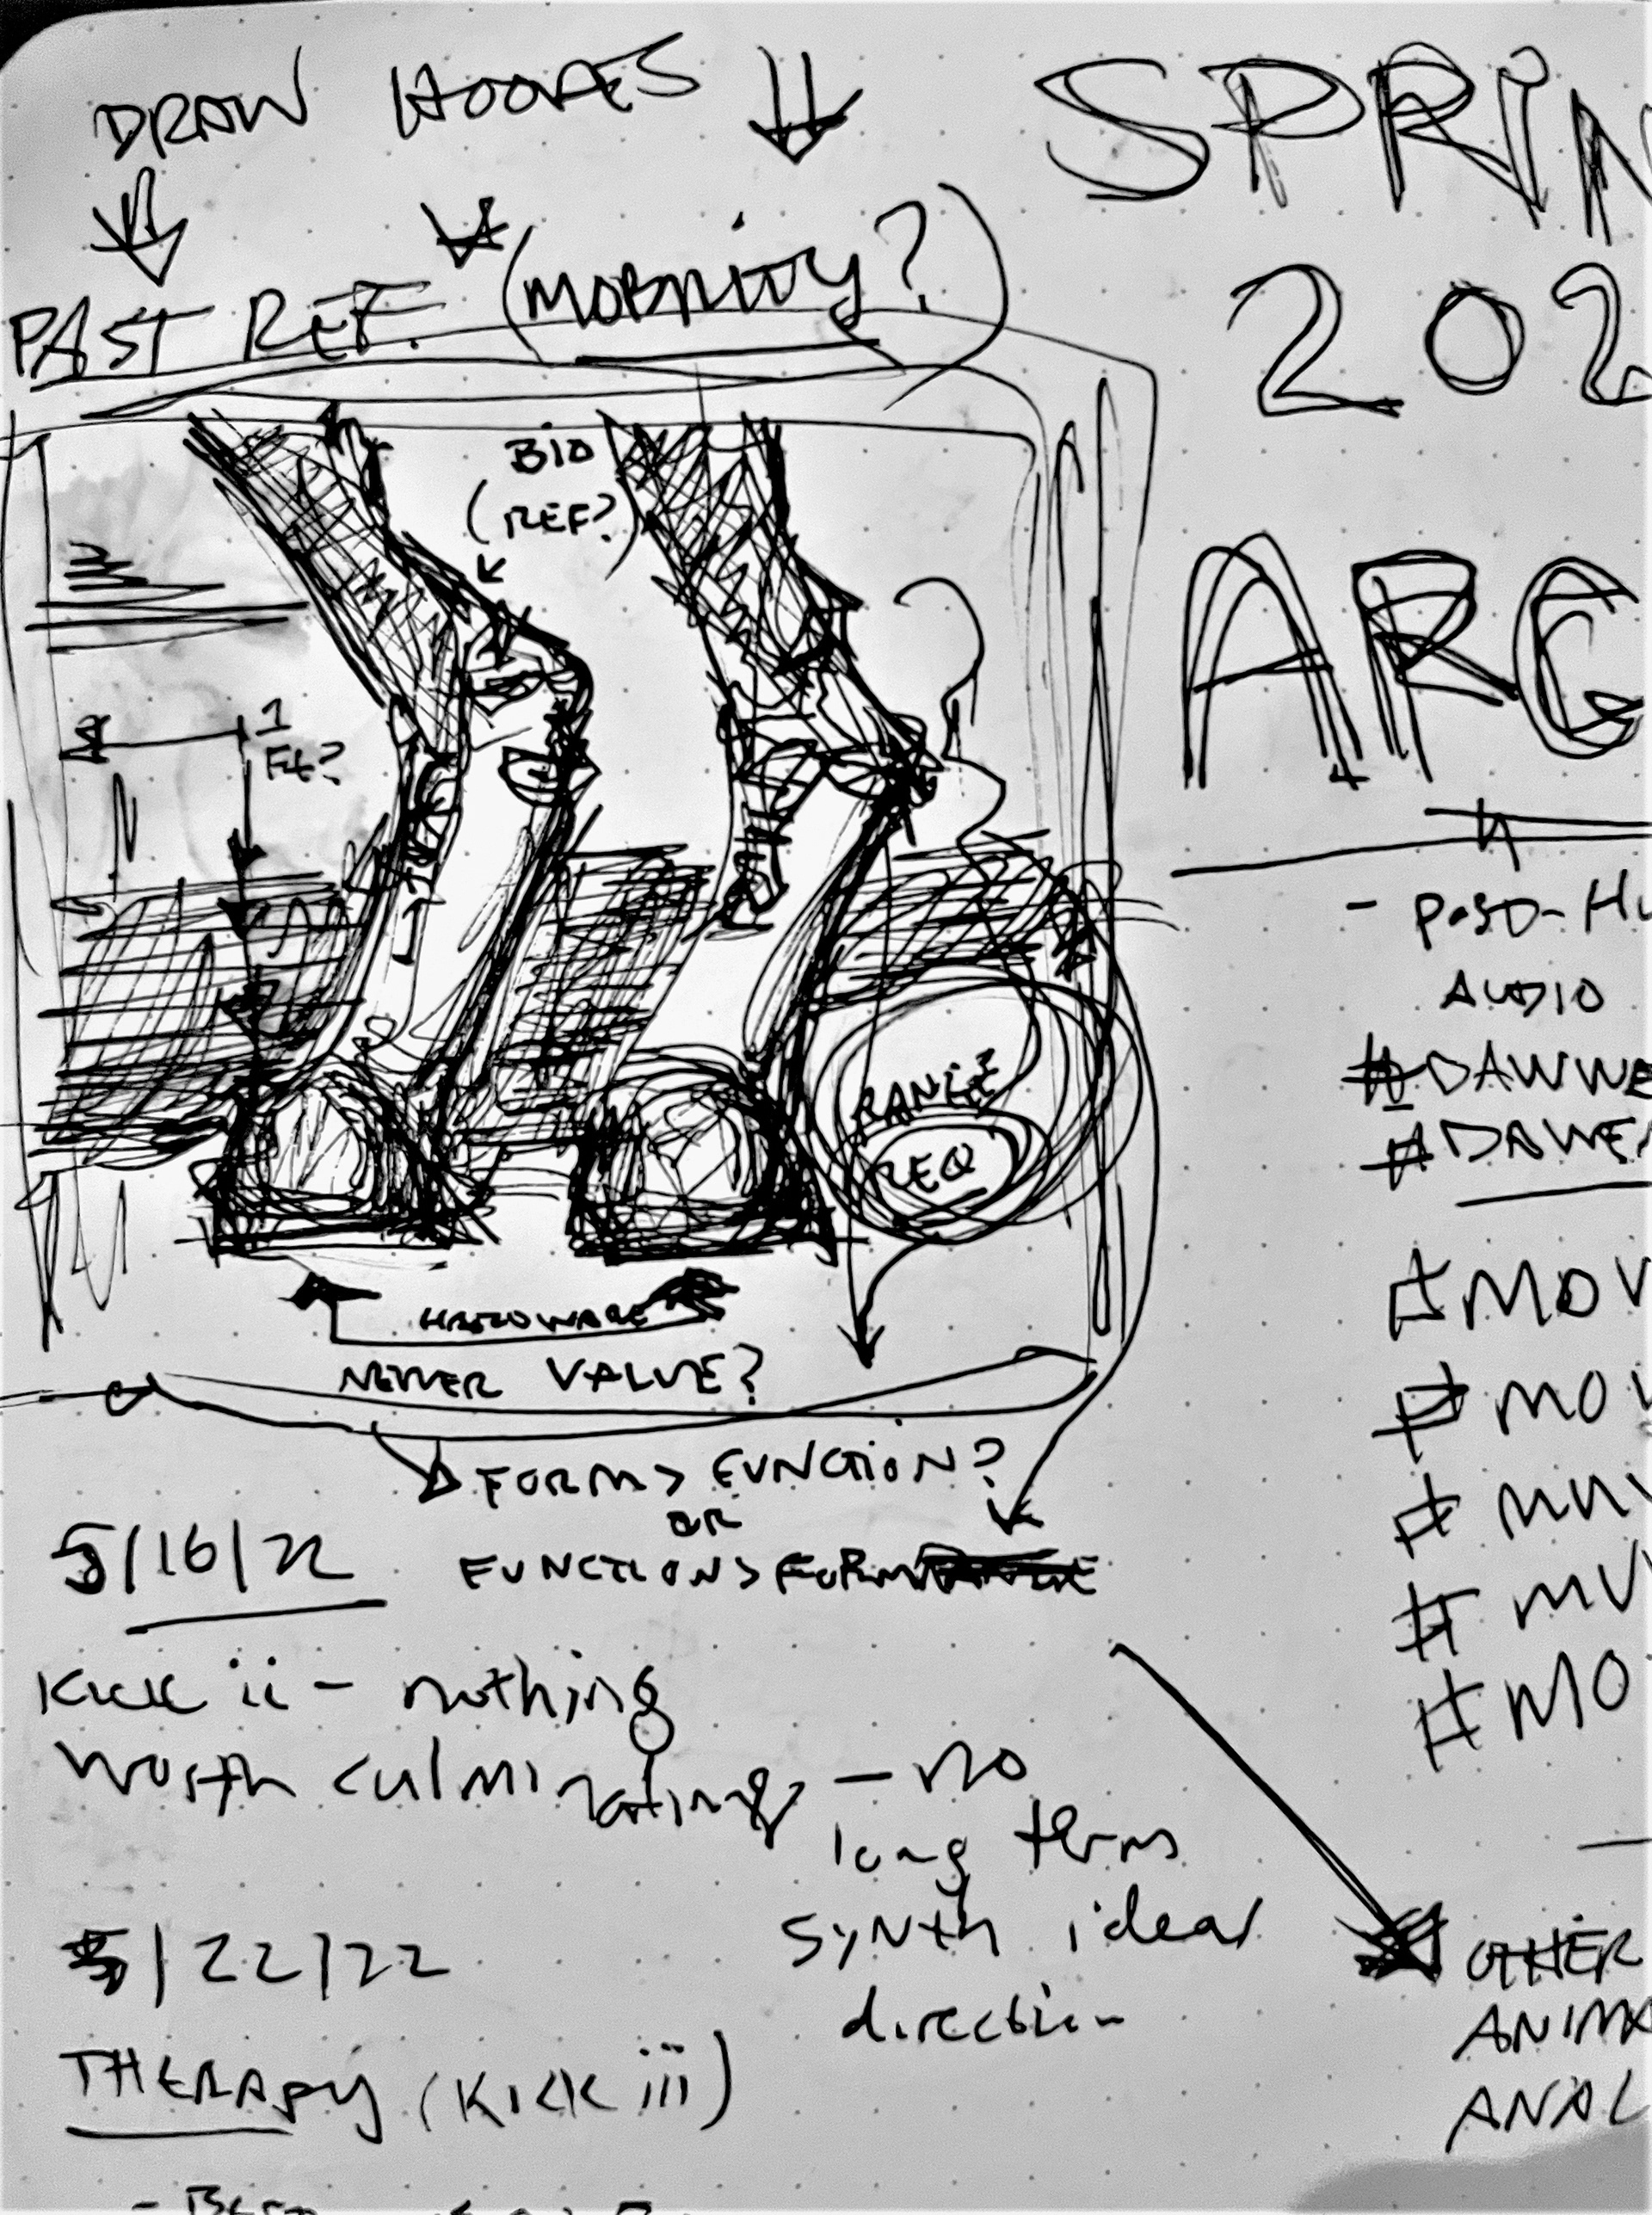 DRAW HOOVES
PAST REF. (MOBILITY?)
BIO
(REF?)
1
Ft?
RANGE
REQ
HARDWARE
NEWER VALUE?
FORM > FUNCTION?
OR
FUNCTION > FORM
5/16/22
KICK ii - nothing
worth culminating - no
long term
synth idea
direction
5/22/22
THERAPY (KICK iii)
SPRIN
202
ARC
- POST-HU
AUDIO
#DAWWE
#DAWE
#MOV
#MOV
#MU
#MO
OTHER
ANIMA
ANAL